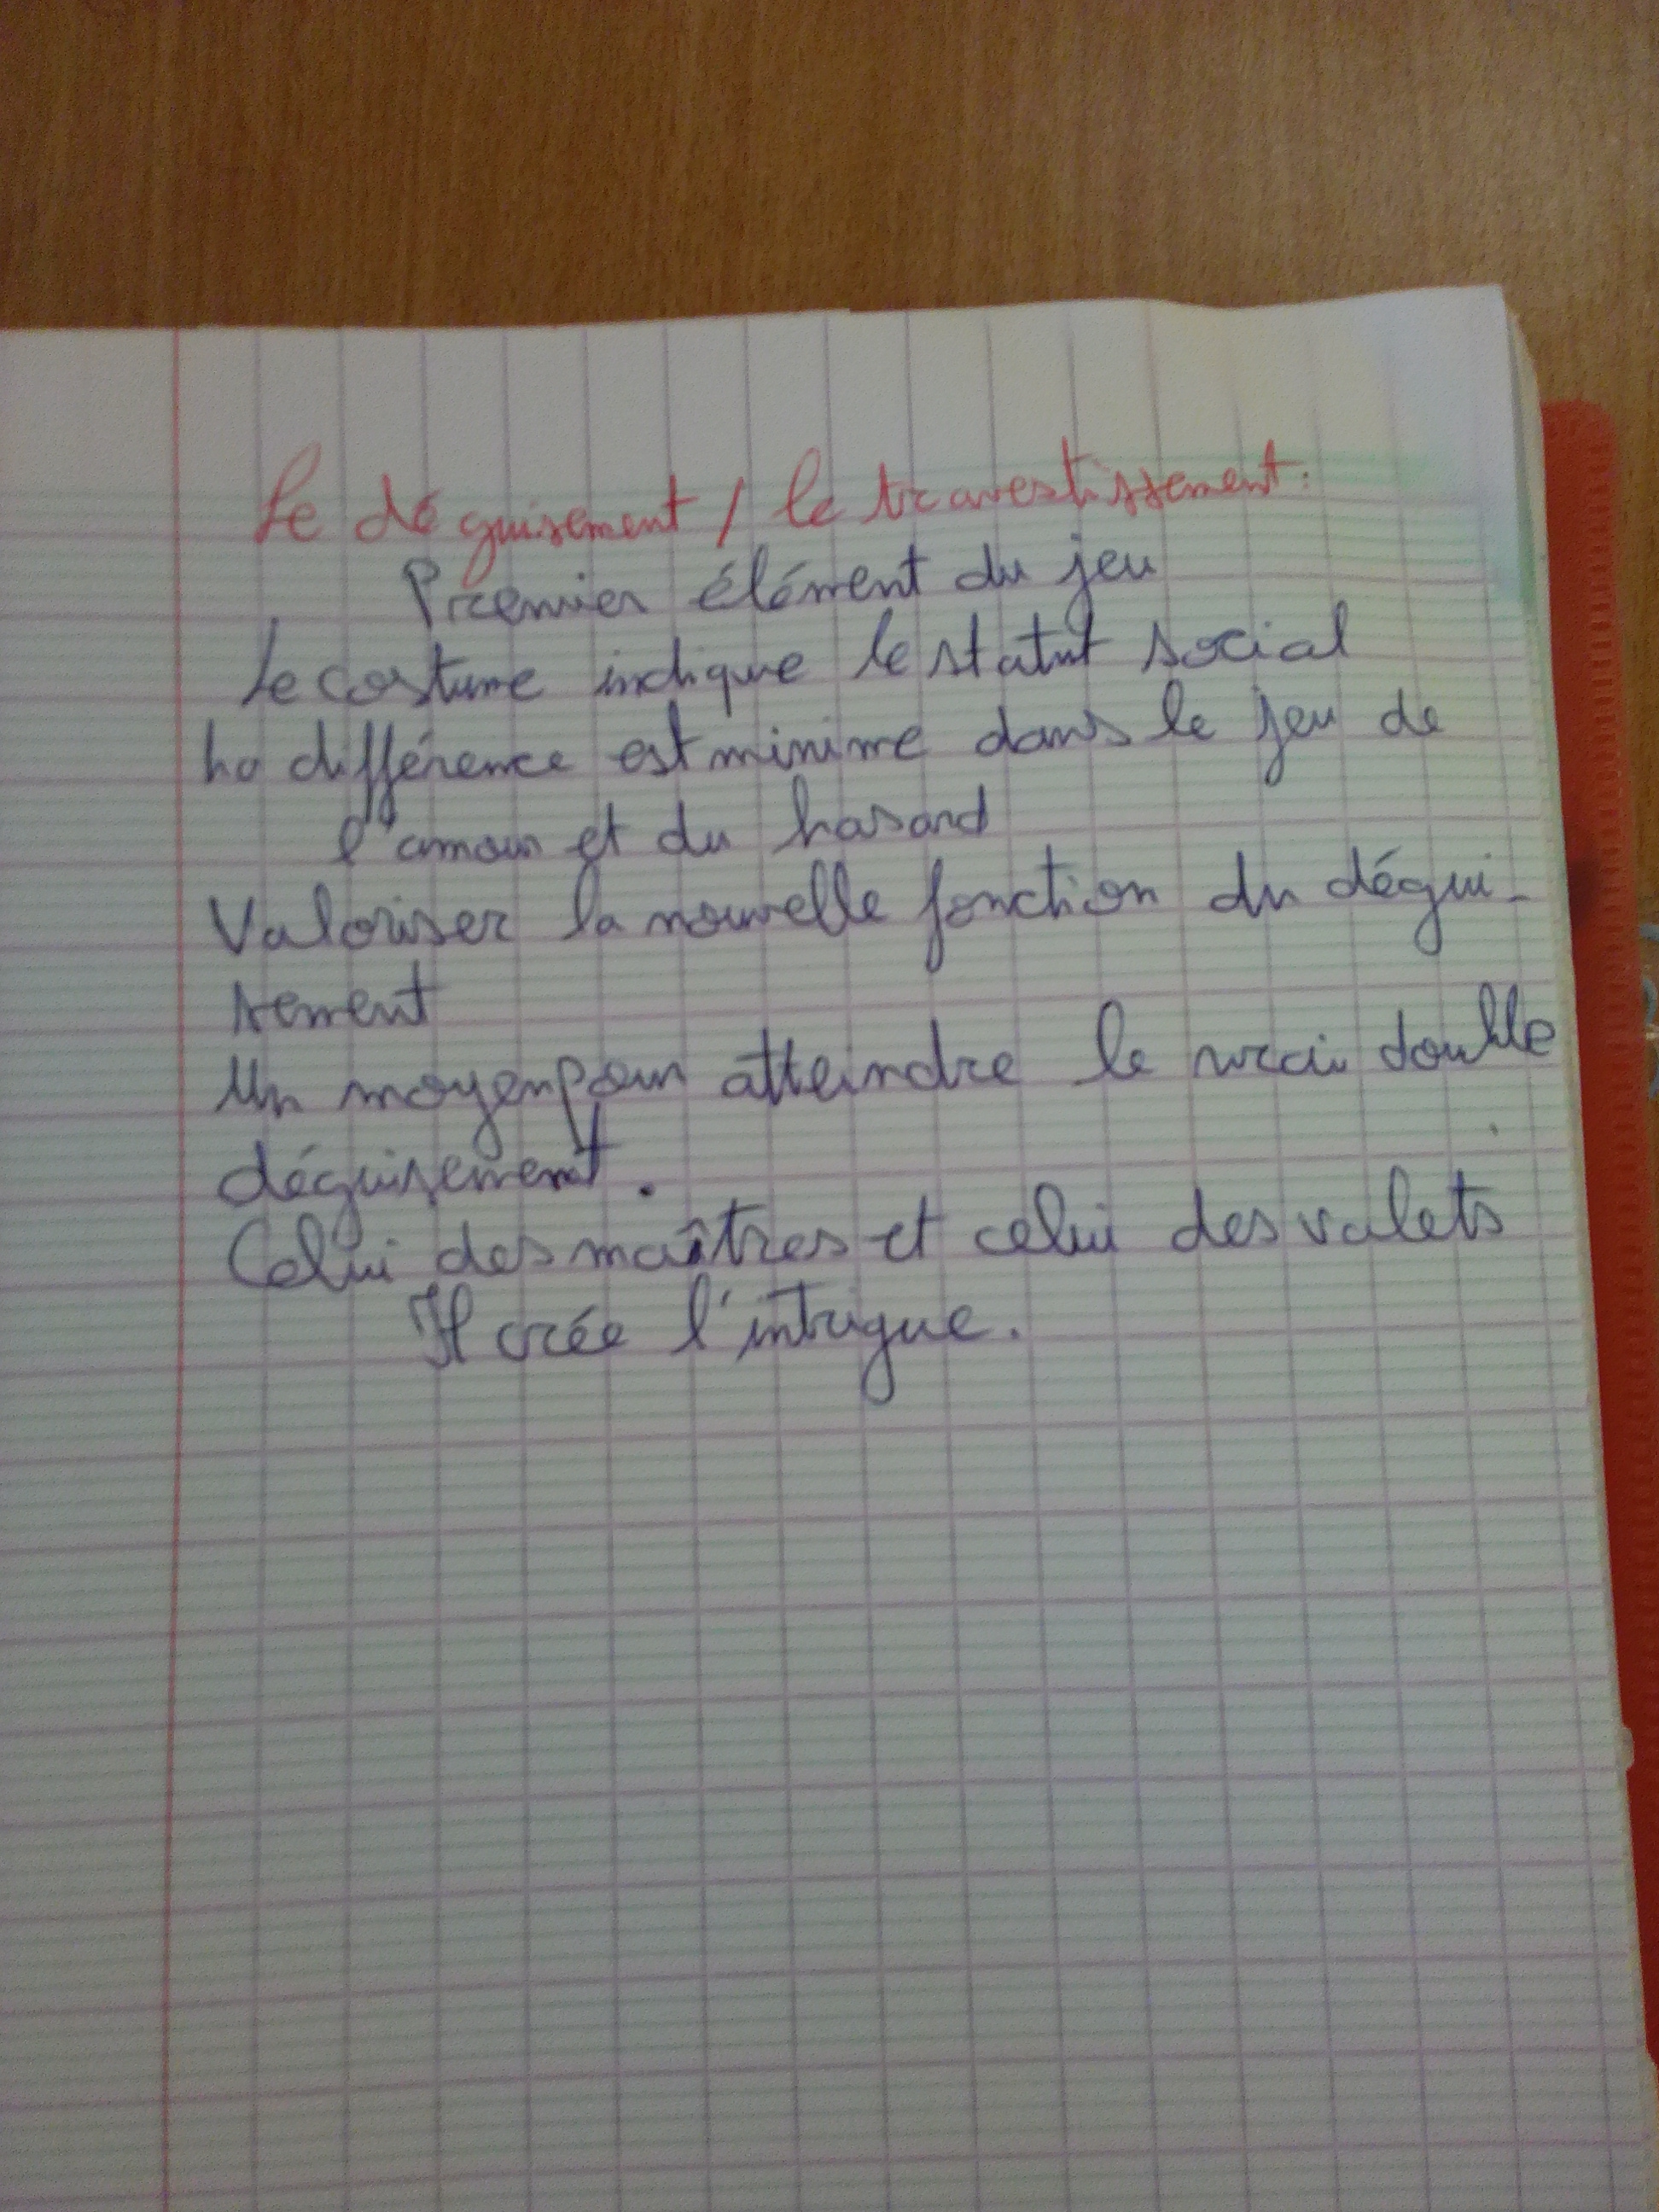 Le déguisement / le travestissement:
Premier élément du jeu
Le costume indique le statut social
La différence est minime dans le jeu de
l'amour et du hasard
Valoriser la nouvelle fonction du dégui-
sement
Un moyen pour atteindre le vrai double
déguisement.
Celui des maîtres et celui des valets
Il crée l'intrigue.